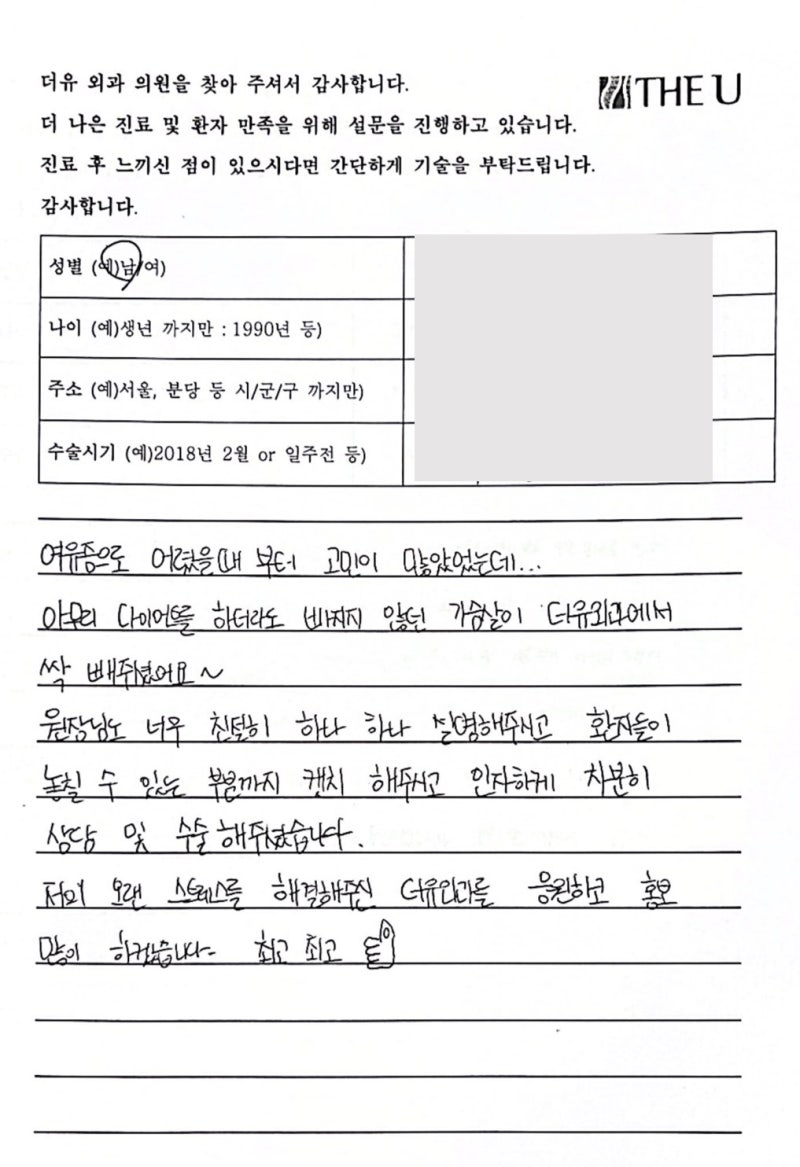 더유 외과 의원을 찾아 주셔서 감사합니다.
THE U
더 나은 진료 및 환자 만족을 위해 설문을 진행하고 있습니다.
진료 후 느끼신 점이 있으시다면 간단하게 기술을 부탁드립니다.
감사합니다.
성별 (예)남/여)
나이 (예)생년 까지만 : 1990년 등)
주소 (예)서울, 분당 등 시/군/구 까지만)
수술시기 (예)2018년 2월 or 일주전 등)
여유증으로 어렸을때 부터 고민이 많았었는데...
아무리 다이어트를 하더라도 빠지지 않던 가슴살이 더유외과에서
싹 빼주셨어요~
원장님도 너무 친절히 하나 하나 설명해주시고 환자들이
놓칠 수 있는 부분까지 캐치 해주시고 인자하게 차분히
상담 및 수술 해주셨습니다.
저의 오랜 스트레스를 해결해주신 더유외과를 응원하고 홍보
많이 하겠습니다~ 최고 최고